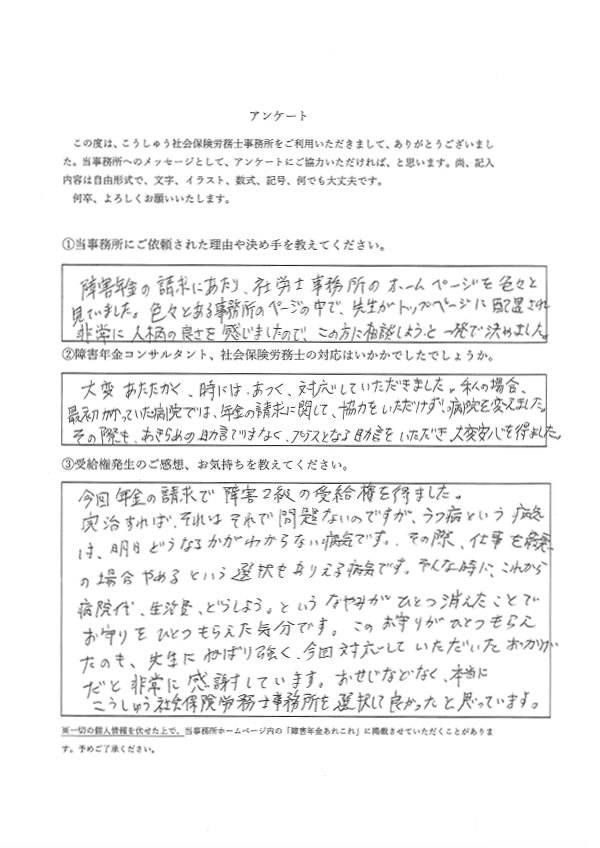 アンケート
この度は、こうしゅう社会保険労務士事務所をご利用いただきまして、ありがとうございまし
た。当事務所へのメッセージとして、アンケートにご協力いただければ、と思います。尚、記入
内容は自由形式で、文字、イラスト、数式、記号、何でも大丈夫です。
何卒、よろしくお願いいたします。
①当事務所にご依頼された理由や決め手を教えてください。
障害年金の請求にあたり、社労士事務所のホームページを色々と
見ていました。色々とある事務所のページの中で、先生がトップページに配置され
非常に人柄の良さを感じましたので、この方に相談しようと一発で決めました。
②障害年金コンサルタント、社会保険労務士の対応はいかかでしたでしょうか。
大変あたたかく、時には、あつく、対応していただきました。私の場合、
最初かかっていた病院では、年金の請求に関して、協力をいただけず、病院を変えました。
その際も、あきらめの助言ではなく、プラスとなる助言をいただき大変安心を得ました。
③受給権発生のご感想、お気持ちを教えてください。
今回年金の請求で障害2級の受給権を得ました。
完治すれば、それはそれで問題ないのですが、うつ病という病気
は、明日どうなるかがわからない病気です。その際、仕事を
の場合やめるという選択もありえる病気です。そんな時に、これから
病院代、生活費、どうしよう。というなやみがひとつ消えたことで
お守りをひとつもらえた気分です。このお守りがひとつもらえ
たのも、先生にねばり強く、今回対応していただいたおかげ
だと非常に感謝しています。おせじなどなく、本当に
こうしゅう社会保険労務士事務所を選択して良かったと思っています。
※一切の個人情報を伏せた上で、当事務所ホームページ内の「障害年金あれこれ」に掲載させていただくことがありま
す。予めご了承ください。